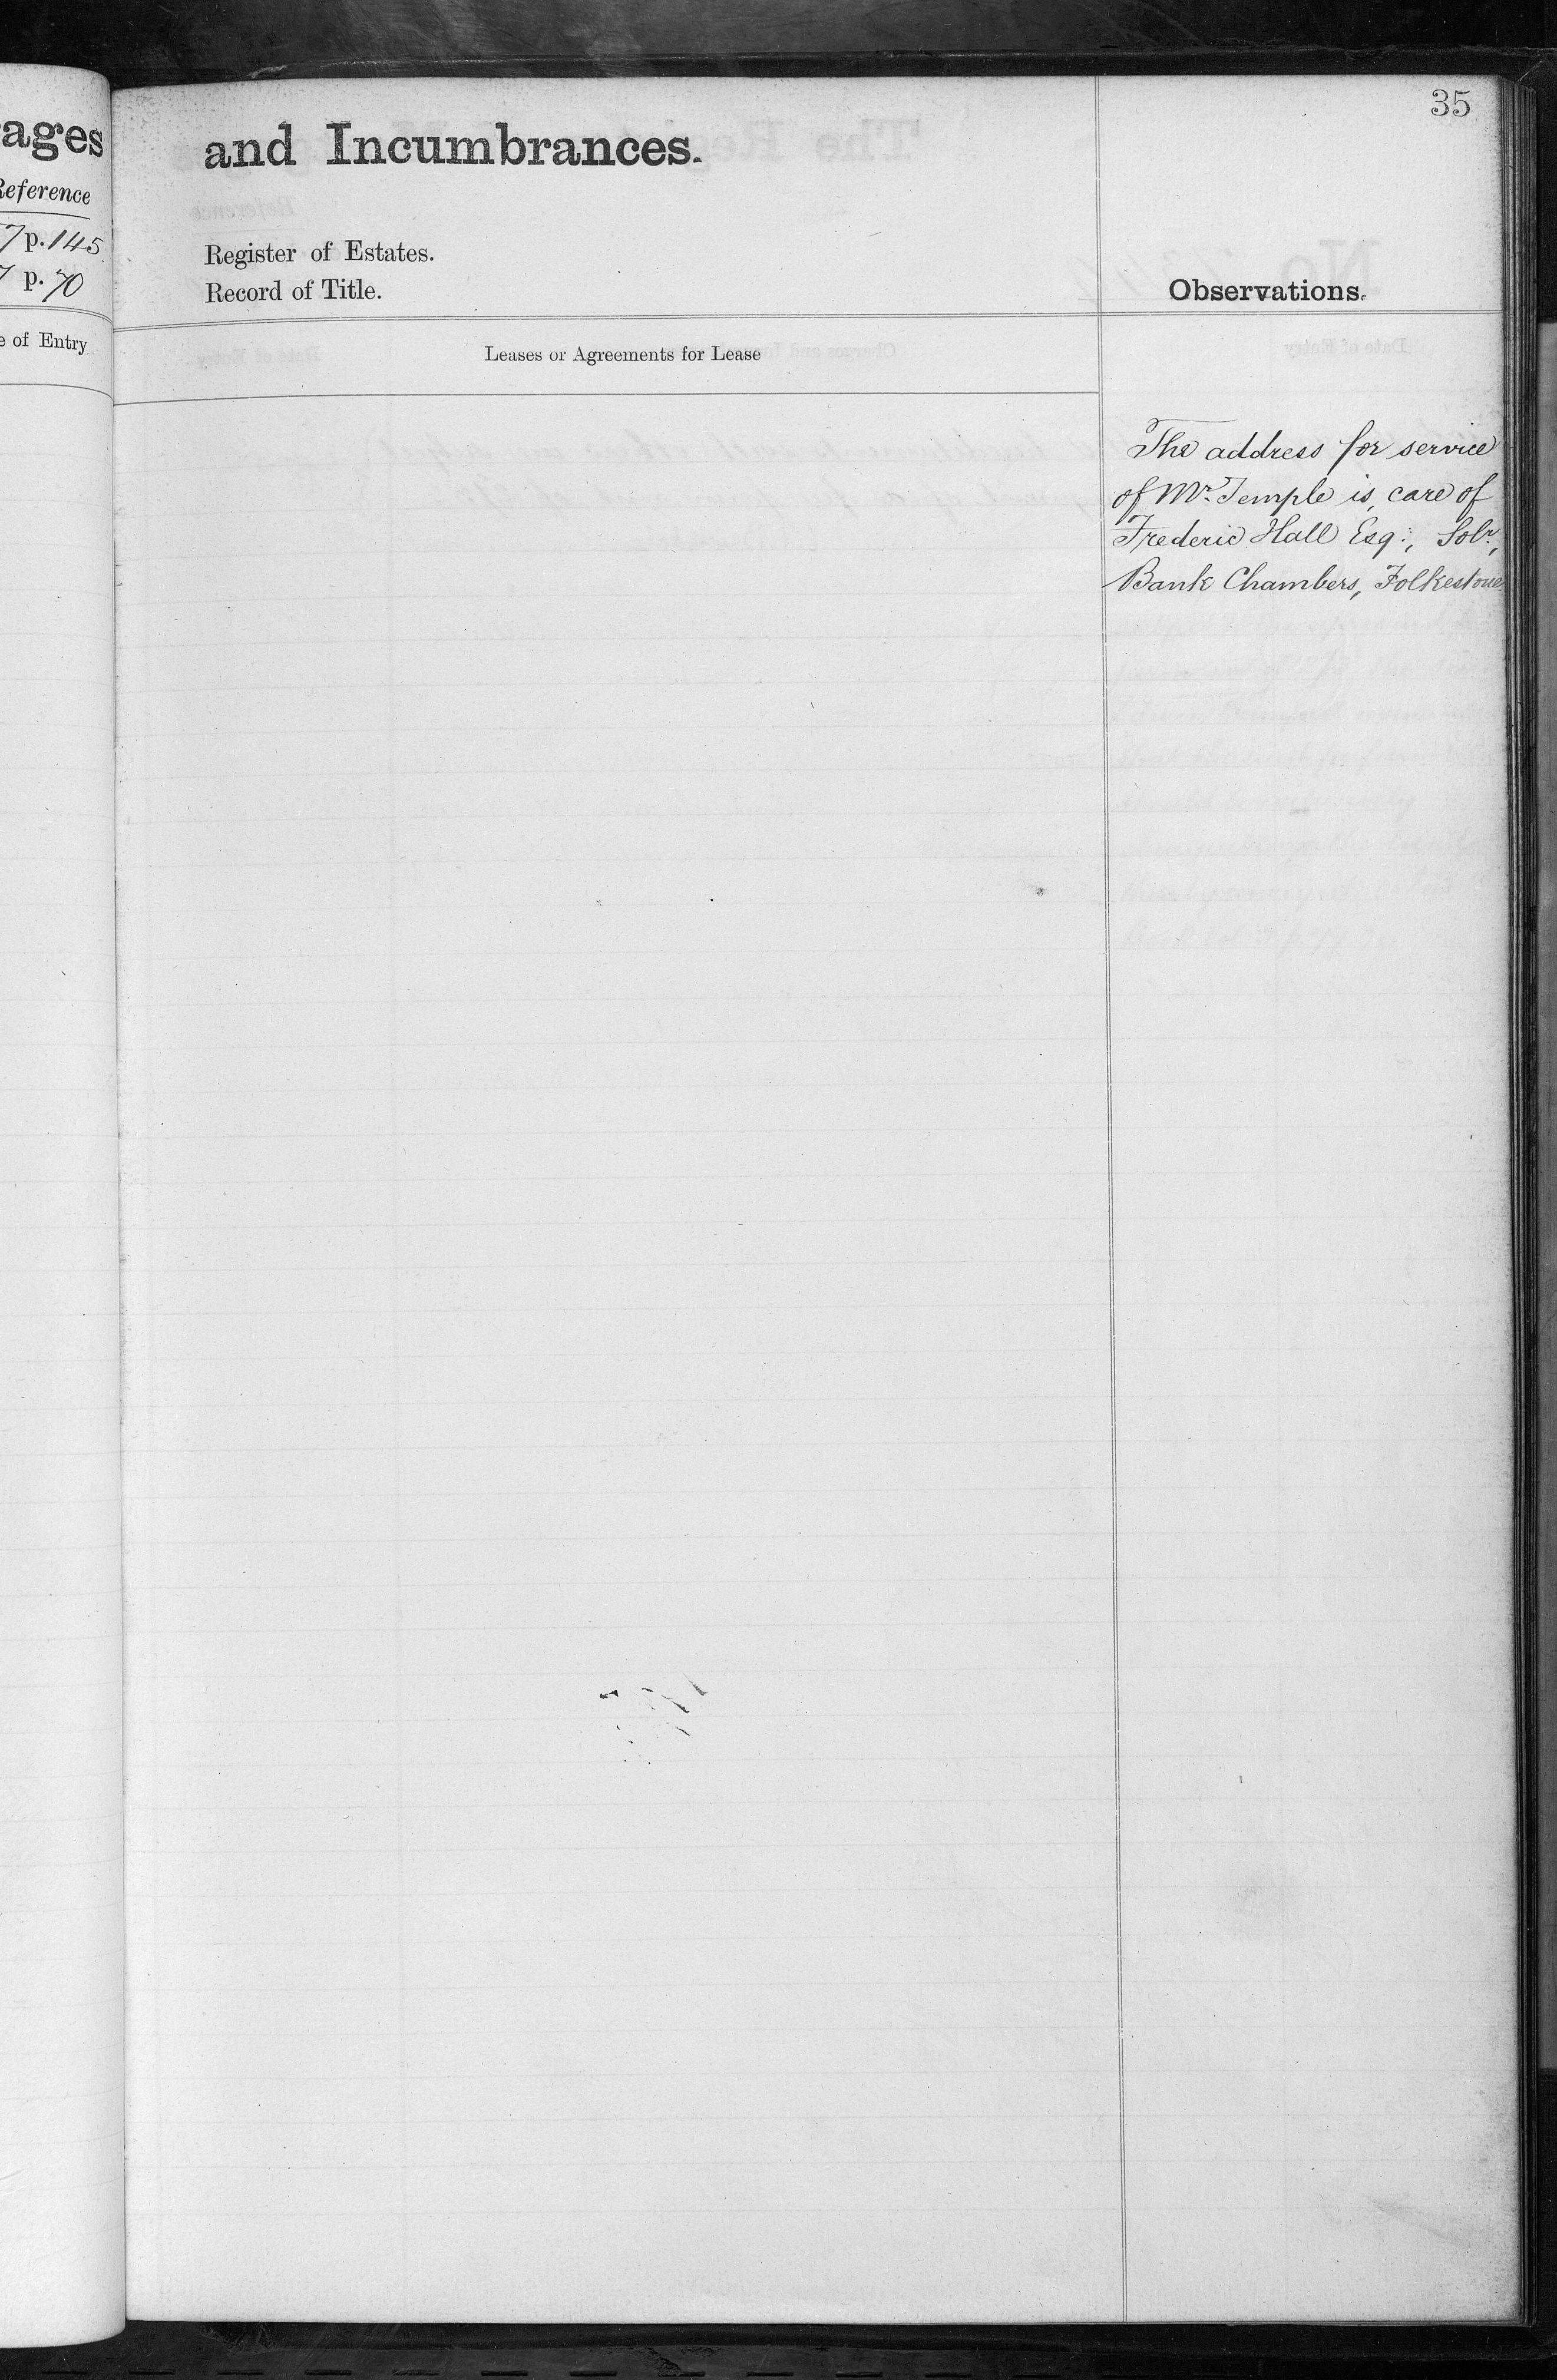 35
ages
Reference
7 p. 145
p. 70
e of Entry
and Incumbrances.
Register of Estates.
Record of Title.
Observations.
Leases or Agreements for Lease
The address for service
of Mr. Temple is, care of
Frederic Hall Esq:, Solr,
Bank Chambers, Folkestone